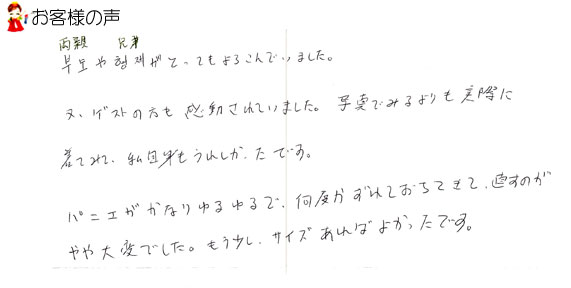 お客様の声
両親 兄弟
부모や형제がとってもよろこんでいました。
又、ゲストの方も感動されていました。写真でみるよりも実際に
着てみて、私自身もうれしかったです。
パニエがかなりゆるゆるで、何度かずれておちてきて、直すのが
やや大変でした。もう少し、サイズあればよかったです。